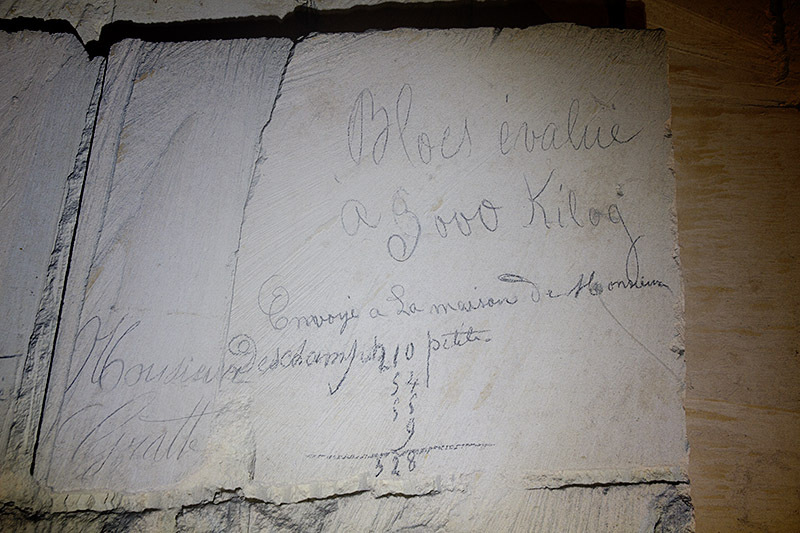 Blocs évalué
à 3000 Kilog
Envoyé a La maison de Monsieur
Deschamps 210 petite
54
55
9
328
Monsieur
Gratte